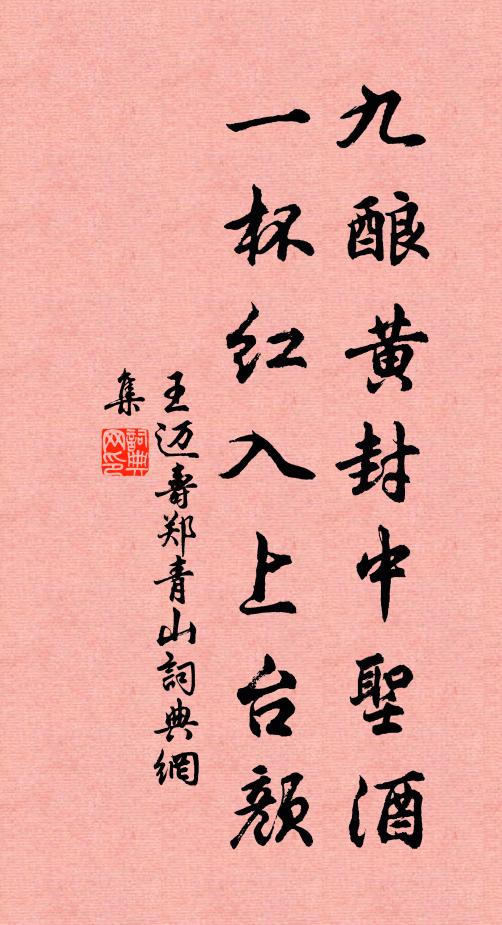 九酿黄封中聖酒
一杯红入上台颜
王迈寿郑青山詞典網
集
詞典网印